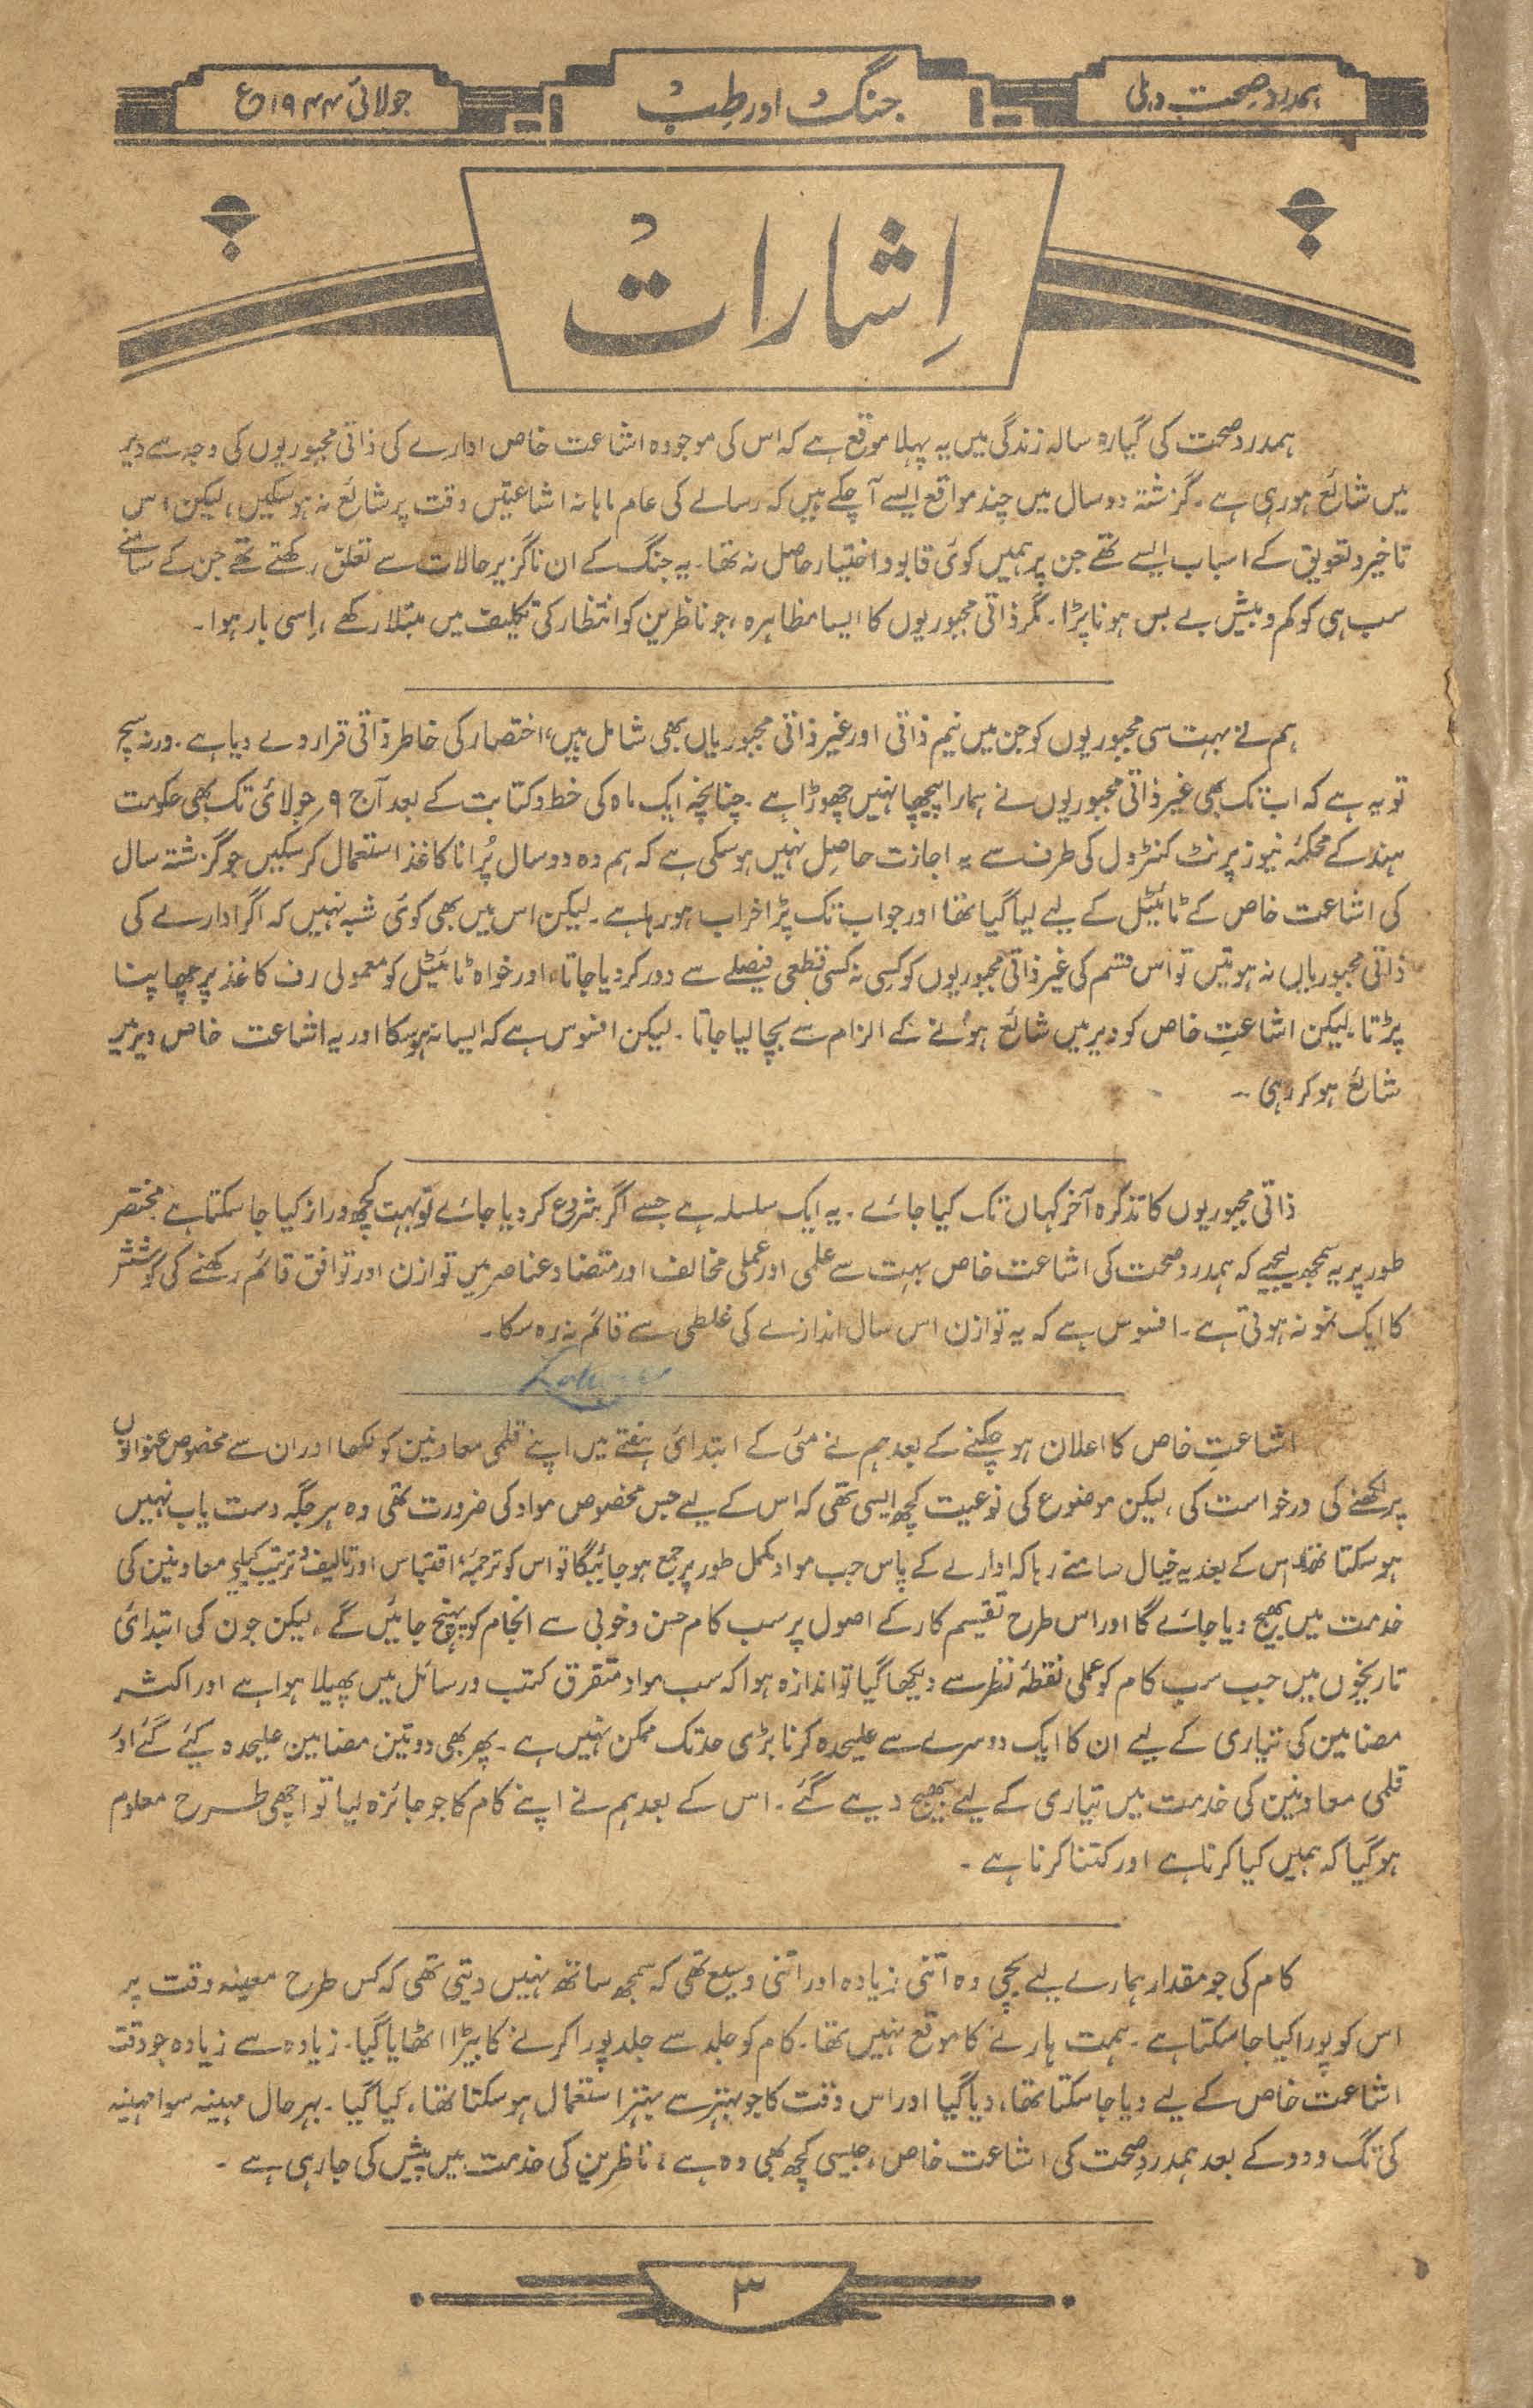 ہمدرد صحت دہلی
جنگ اور طِب
جولائی ۱۹۴۴ء
اِشارات
ہمدرد صحت کی گیارہ سالہ زندگی میں یہ پہلا موقع ہے کہ اس کی موجودہ اشاعت خاص ادارے کی ذاتی مجبوریوں کی وجہ سے دیر
میں شائع ہو رہی ہے۔ گزشتہ دو سال میں چند مواقع ایسے آچکے ہیں کہ رسالے کی عام ماہانہ اشاعتیں وقت پر شائع نہ ہو سکیں، لیکن اس
تاخیر و تعویق کے اسباب ایسے تھے جن پر ہمیں کوئی قابو و اختیار حاصل نہ تھا۔ یہ جنگ کے ان ناگزیر حالات سے تعلق رکھتے تھے جن کے سامنے
سب ہی کو کم و بیش بے بس ہونا پڑا۔ مگر ذاتی مجبوریوں کا ایسا مظاہرہ، جو ناظرین کو انتظار کی تکلیف میں مبتلا رکھے، اِسی بار ہوا۔
ہم نے بہت سی مجبوریوں کو جن میں نیم ذاتی اور غیر ذاتی مجبوریاں بھی شامل ہیں، اختصار کی خاطر ذاتی قرار دے دیا ہے۔ ورنہ سچ
تو یہ ہے کہ اب تک بھی غیر ذاتی مجبوریوں نے ہمارا پیچھا نہیں چھوڑا ہے۔ چنانچہ ایک ماہ کی خط و کتابت کے بعد آج ۹ جولائی تک بھی حکومت
ہند کے محکمۂ نیوز پرنٹ کنٹرول کی طرف سے یہ اجازت حاصل نہیں ہو سکی ہے کہ ہم وہ دو سال پُرانا کاغذ استعمال کر سکیں جو گزشتہ سال
کی اشاعت خاص کے ٹائیٹل کے لیے لیا گیا تھا اور جو اب تک پڑا خراب ہو رہا ہے۔ لیکن اس میں بھی کوئی شبہ نہیں کہ اگر ادارے کی
ذاتی مجبوریاں نہ ہوتیں تو اس قسم کی غیر ذاتی مجبوریوں کو کسی نہ کسی قطعی فیصلے سے دور کر دیا جاتا، اور خواہ ٹائیٹل کو معمولی رف کاغذ پر چھاپنا
پڑتا۔ لیکن اشاعتِ خاص کو دیر میں شائع ہونے کے الزام سے بچا لیا جاتا۔ لیکن افسوس ہے کہ ایسا نہ ہو سکا اور یہ اشاعت خاص دیر میں
شائع ہو کر رہی۔
ذاتی مجبوریوں کا تذکرہ آخر کہاں تک کیا جائے۔ یہ ایک سلسلہ ہے جسے اگر شروع کر دیا جائے تو بہت کچھ دراز کیا جا سکتا ہے مختصر
طور پر یہ سمجھ لیجیے کہ ہمدرد صحت کی اشاعت خاص بہت سے علمی اور عملی مخالف اور متضاد عناصر میں توازن اور توافق قائم رکھنے کی کوشش
کا ایک نمونہ ہوتی ہے۔ افسوس ہے کہ یہ توازن اس سال اندازے کی غلطی سے قائم نہ رہ سکا۔
اشاعتِ خاص کا اعلان ہو چکنے کے بعد ہم نے مئی کے ابتدائی ہفتے میں اپنے قلمی معاونین کو لکھا اور ان سے مخصوص عنوانوں
پر لکھنے کی درخواست کی، لیکن موضوع کی نوعیت کچھ ایسی تھی کہ اس کے لیے جس مخصوص مواد کی ضرورت تھی وہ ہر جگہ دست یاب نہیں
ہو سکتا تھا۔ اس کے بعد یہ خیال سامنے رہا کہ ادارے کے پاس جب مواد مکمل طور پر جمع ہو جائیگا تو اس کو ترجمہ، اقتباس اور تالیف و ترتیب کیلیے معاونین کی
خدمت میں بھیج دیا جائے گا اور اس طرح تقسیم کار کے اصول پر سب کام حسن و خوبی سے انجام کو پہنچ جائیں گے، لیکن جون کی ابتدائی
تاریخوں میں جب سب کام کو عملی نقطۂ نظر سے دیکھا گیا تو اندازہ ہوا کہ سب مواد متفرق کتب و رسائل میں پھیلا ہوا ہے اور اکثر
مضامین کی تیاری کے لیے ان کا ایک دوسرے سے علیحدہ کرنا بڑی حد تک ممکن نہیں ہے۔ پھر بھی دو تین مضامین علیحدہ کیے گئے اور
قلمی معاونین کی خدمت میں تیاری کے لیے بھیج دیے گئے۔ اس کے بعد ہم نے اپنے کام کا جو جائزہ لیا تو اچھی طرح معلوم
ہو گیا کہ ہمیں کیا کرنا ہے اور کتنا کرنا ہے۔
کام کی جو مقدار ہمارے لیے بچی وہ اتنی زیادہ اور اتنی وسیع تھی کہ سمجھ ساتھ نہیں دیتی تھی کہ کس طرح معینہ وقت پر
اس کو پورا کیا جا سکتا ہے۔ ہمت ہارنے کا موقع نہیں تھا۔ کام کو جلد سے جلد پورا کرنے کا بیڑا اٹھایا گیا۔ زیادہ سے زیادہ جو وقت
اشاعت خاص کے لیے دیا جا سکتا تھا، دیا گیا اور اس وقت کا جو بہتر سے بہتر استعمال ہو سکتا تھا، کیا گیا۔ بہرحال مہینہ سوا مہینہ
کی تگ و دو کے بعد ہمدردِ صحت کی اشاعت خاص، جیسی کچھ بھی وہ ہے، ناظرین کی خدمت میں پیش کی جا رہی ہے۔
۳